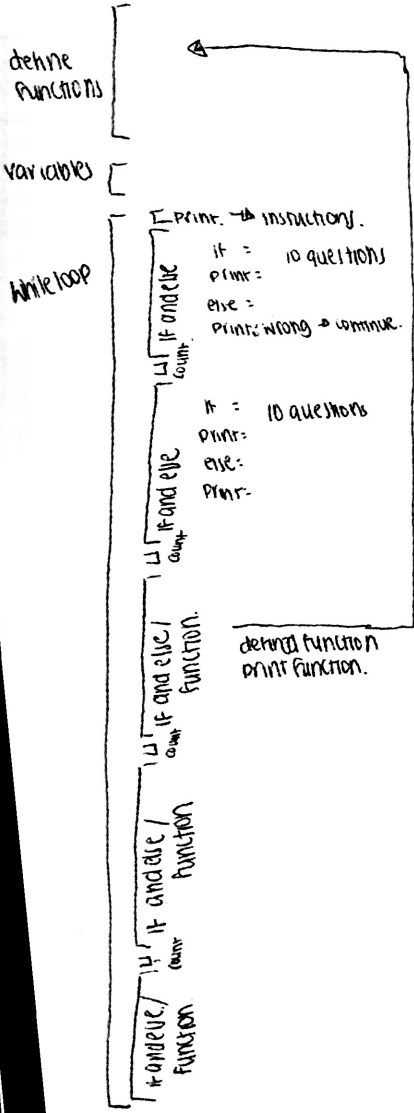 define
functions
variables
while loop
print. → instructions.
if = 10 questions
print:
else =
print: wrong → continue.
if and else
count.
if = 10 questions
print:
else:
print-
if and else
count
defined function
print function.
if and else /
function.
count
if and else /
function
count
if and else /
function.